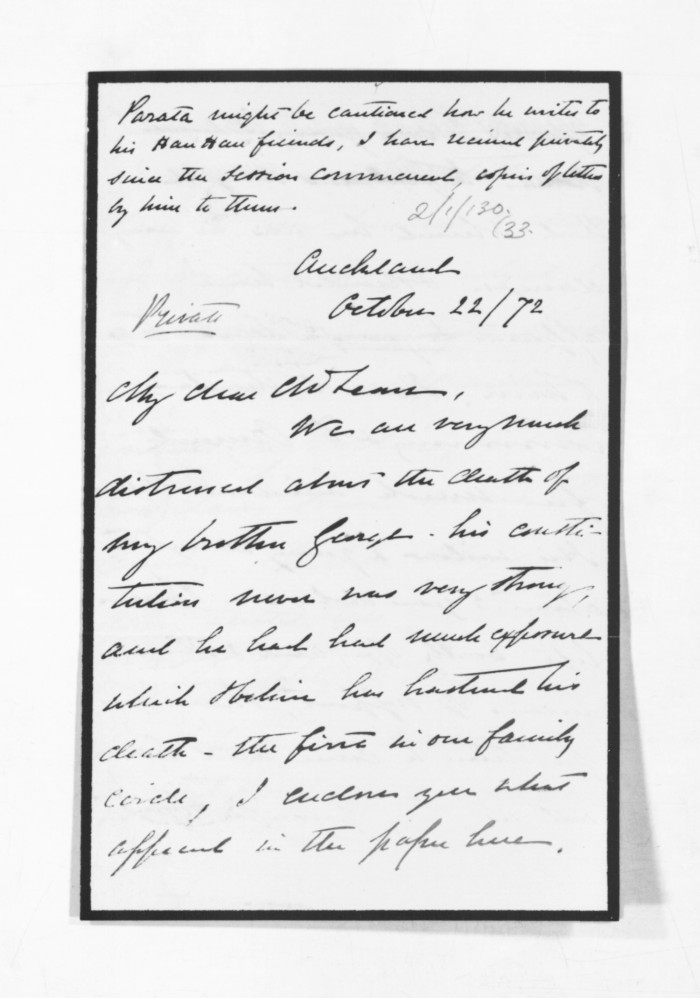 Parata might be cautioned how he writes to
his Hau Hau friends, I have received privately
since the session commenced, copies of letters
by him to them.
2/1/130.
(33.
Auckland
October 22/72
Private
My dear McLean,
We are very much
distressed about the death of
my brother George - his consti-
tution never was very strong,
and he had had much exposure
which I believe has hastened his
death - the first in our family
circle, I enclose you what
appeared in the paper here.